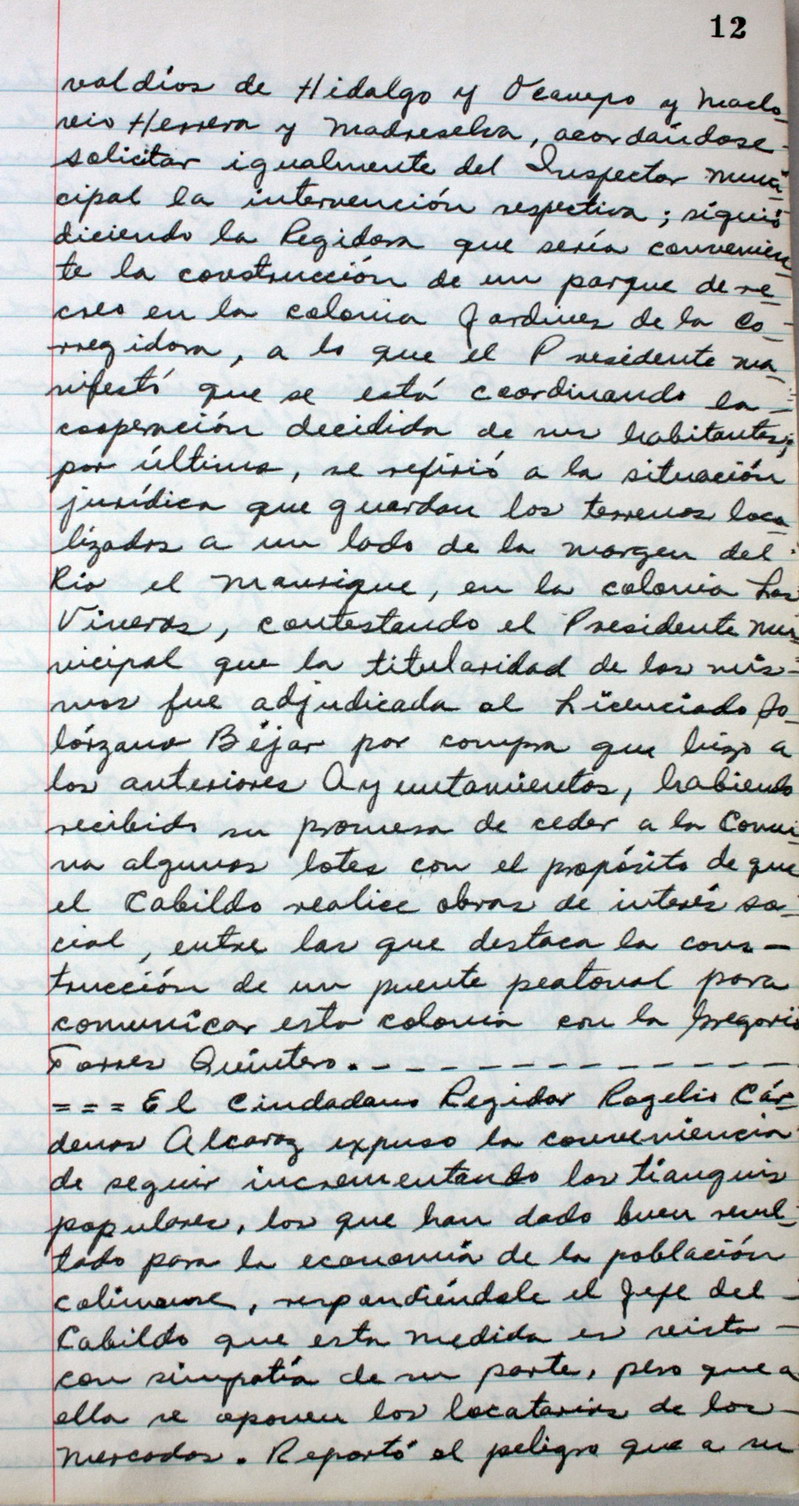 12
valdíos de Hidalgo y Ocampo y Maclo-
vio Herrera y Madreselva, acordándose-
solicitar igualmente del Inspector Muni-
cipal la intervención respectiva; siguió
diciendo la Regidora que sería convenien-
te la construcción de un parque de re-
creo en la colonia Jardines de la Co-
rregidora, a lo que el Presidente ma-
nifestó que se está coordinando la-
cooperación decidida de sus habitantes;
por último, se refirió a la situación
jurídica que guardan los terrenos loca-
lizados a un lado de la margen del-
Río el Manrique, en la colonia Los
Viveros, contestando el Presidente Mu-
nicipal que la titularidad de los mis-
mos fue adjudicada al Licenciado So-
lórzano Béjar por compra que hizo a
los anteriores Ayuntamientos, habiendo
recibido su promesa de ceder a la Comu-
na algunos lotes con el propósito de que
el Cabildo realice obras de interés so-
cial, entre las que destaca la cons-
trucción de un puente peatonal para
comunicar esta colonia con la Gregorio
Torres Quintero.- - - - - - - - - -
=== El Ciudadano Regidor Rogelio Cár-
denas Alcaraz expuso la conveniencia
de seguir incrementando los tianguis
populares, los que han dado buen resul-
tado para la economía de la población
colimense, respondiéndole el Jefe del-
Cabildo que esta medida es vista-
con simpatía de su parte, pero que a
ella se oponen los locatarios de los-
mercados. Reportó el peligro que a su